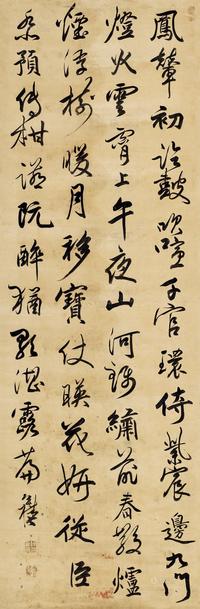 鳳輦初臨鼓吹喧千官環侍紫宸邊九門
燈火雲霄上午夜山河錦繡前春散爐
煙浮暖月移寶仗映花妍從臣
忝預傳柑讌既醉猶歌湛露篇